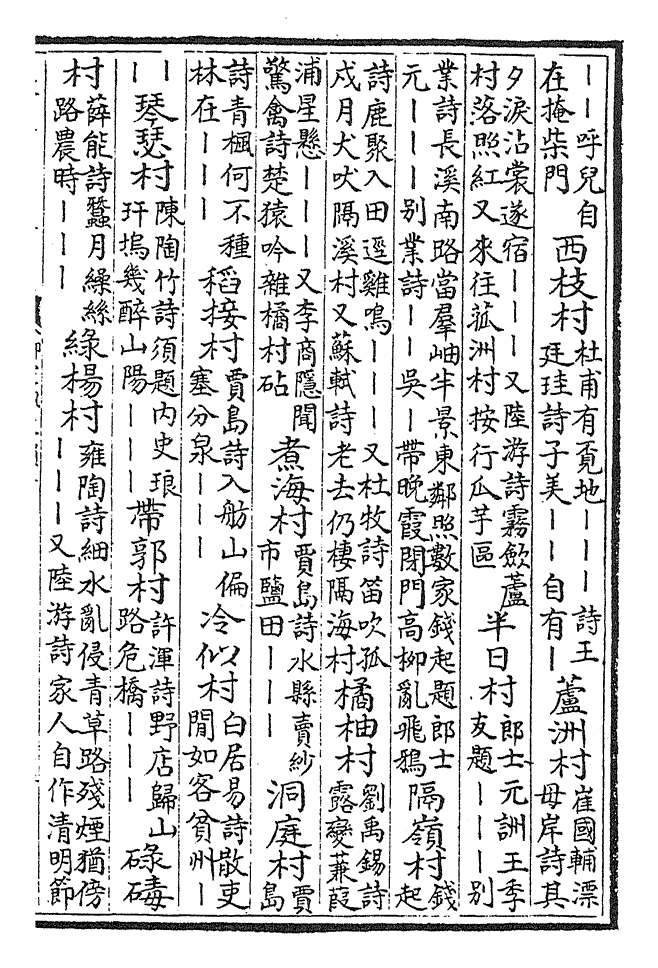 ｜｜呼兒自在掩柴門 西枝村 杜甫有覔地｜｜｜詩王廷珪詩子美｜｜自有｜ 蘆洲村 崔國輔漂母岸詩其
夕淚沾裳遂宿｜｜｜又陸游詩霧歛蘆村落照紅又來往菰洲村按行瓜芋區 半日村 郎士元詶王季友題｜｜｜別
業詩長溪南路當羣岫半景東鄰照數家錢起題郎士元｜｜｜别業詩｜｜吳｜帶晚霞閉門高柳亂飛鴉 隔嶺村 錢起
詩鹿聚入田逕雞鳴｜｜｜又杜牧詩笛吹孤戍月犬吠隔溪村又蘇軾詩老去仍棲隔海村 橘柚村 劉禹錫詩露變蒹葭
浦星懸｜｜｜又李商隱聞驚禽詩楚猿吟雜橘村砧 煮海村 賈島詩水縣賣紗市鹽田｜｜｜ 洞庭村 賈島
詩青楓何不種林在｜｜｜ 稻接村 賈島詩入舫山偏塞分泉｜｜｜ 冷似村 白居易詩散吏閒如客貧州｜
｜｜ 琴瑟村 陳陶竹詩須題内史琅玕塢幾醉山陽｜｜｜ 帶郭村 許渾詩野店歸山路危橋｜｜｜ 碌碡
村 薛能詩蠶月繰絲路農時｜｜｜ 綠楊村 雍陶詩細水亂侵青草路殘煙猶傍｜｜｜又陸游詩家人自作清明節